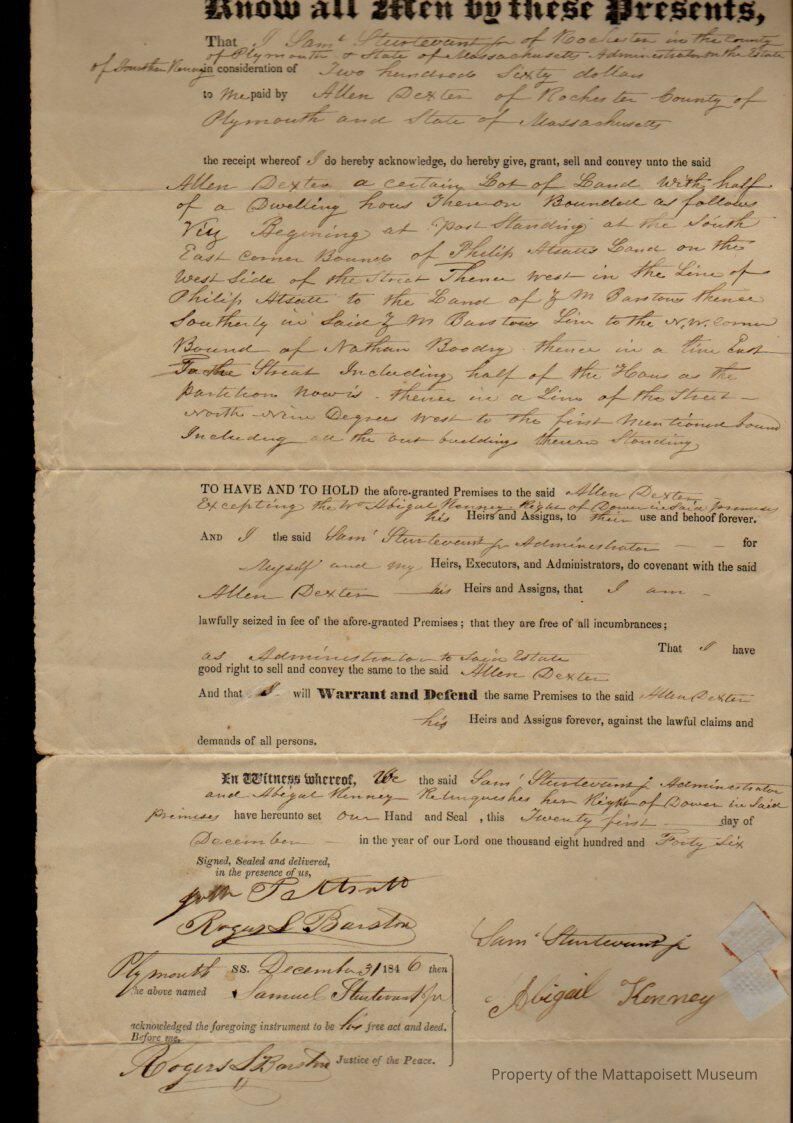 Know all Men by these Presents,
That I Saml Sturtevant jr of Rochester in the County
of Plymouth & State of Massachusetts Administrator on the Estate
of Jonathan Kenney in consideration of Two hundred Sixty dollars
to me paid by Allen Dexter of Rochester County of
Plymouth and State of Massachusetts
the receipt whereof I do hereby acknowledge, do hereby give, grant, sell and convey unto the said
Allen Dexter a certain Lot of Land with half
of a Dwelling hous Thereon Bounded as follows
Viz Begining at Post Standing at the South
East corner Bound of Philip Atsatts Land on the
West Side of the Street Thence West in the Line of
Philip Atsatt to the Land of Z M Barstows thence
Southerly in Said Z M Barstows Line to the N.W. Corner
Bound of Nathan Boodry thence in a line East
To the Street Including half of the Hous as the
partition now is - thence in a Line of the Street -
North Nine Degrees West to the first Mentioned bound
Including all the out buildings thereon Standing
TO HAVE AND TO HOLD the afore-granted Premises to the said Allen Dexter
Excepting the Abigal Kenney Right of Dower in said premises
his Heirs and Assigns, to their use and behoof forever.
AND I the said Saml Sturtevant jr Administrator for
Myself and my Heirs, Executors, and Administrators, do covenant with the said
Allen Dexter his Heirs and Assigns, that I am
lawfully seized in fee of the afore-granted Premises; that they are free of all incumbrances;
as Administrator to Said Estate That I have
good right to sell and convey the same to the said Allen Dexter
And that I will Warrant and Defend the same Premises to the said Allen Dexter
his Heirs and Assigns forever, against the lawful claims and
demands of all persons.
In Witness whereof, We the said Saml Sturtevant jr Administrator
and Abigal Kenney Relinqueshes her Right of Dower in Said
premises have hereunto set our Hand and Seal , this Twenty first day of
December in the year of our Lord one thousand eight hundred and Forty Six
Signed, Sealed and delivered,
in the presence of us,
Atsatt
Rogers L Barstow
Saml Sturtevant jr
Abigail Kenney
Plymouth SS. December 31 1846 then
the above named Samuel Sturtevant jr
acknowledged the foregoing instrument to be his free act and deed.
Before me,
Rogers L Barstow Justice of the Peace.
Property of the Mattapoisett Museum